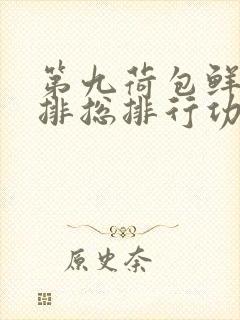 第九荷包鲜
排总排行功
原史奈